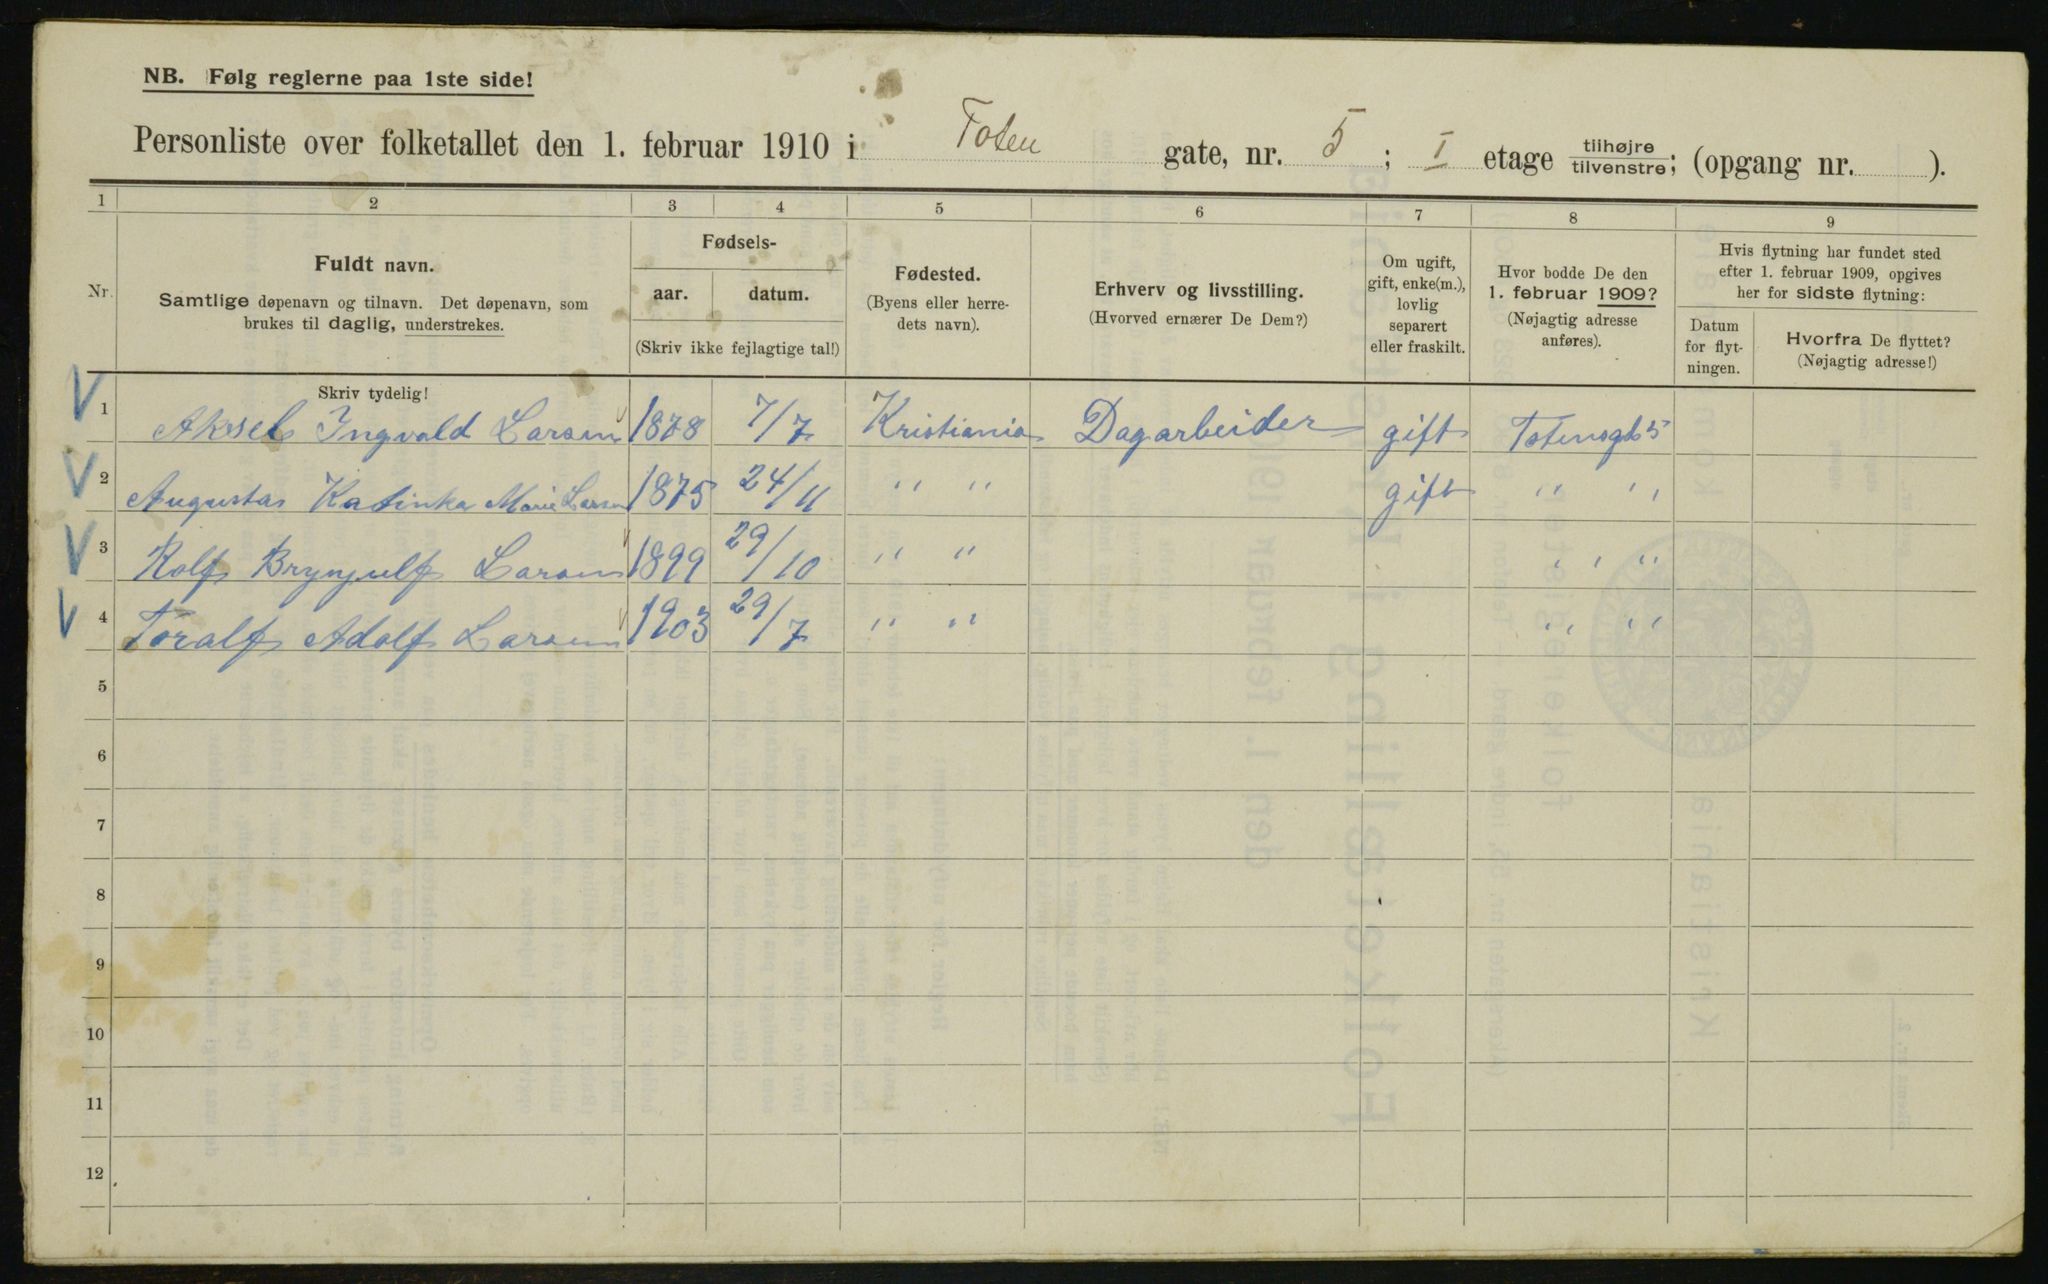 NB. Følg reglerne paa 1ste side!
Personliste over folketallet den 1. februar 1910 i Toten gate, nr. 5; I etage tilhøjre/tilvenstre; (opgang nr. ).
1 2 3 4 5 6 7 8 9
Nr.
Fuldt navn.
Samtlige døpenavn og tilnavn. Det døpenavn, som
brukes til daglig, understrekes.
Fødsels-
aar. datum.
(Skriv ikke fejlagtige tal!)
Fødested.
(Byens eller herre-
dets navn).
Erhverv og livsstilling.
(Hvorved ernærer De Dem?)
Om ugift,
gift, enke(m.),
lovlig
separert
eller fraskilt.
Hvor bodde De den
1. februar 1909?
(Nøjagtig adresse
anføres).
Hvis flytning har fundet sted
efter 1. februar 1909, opgives
her for sidste flytning:
Datum
for flyt-
ningen.
Hvorfra De flyttet?
(Nøjagtig adresse!)
Skriv tydelig!
1 Aksel Ingvald Larsen 1878 7/7 Kristiania Dagarbeider gift Totensgt 5
2 Augustas Katinka Marie Larsen 1875 24/11 " " gift " "
3 Rolf Brynjulf Larsen 1899 29/10 " " " "
4 Toralf Adolf Larsen 1903 29/7 " " " "
5
6
7
8
9
10
11
12